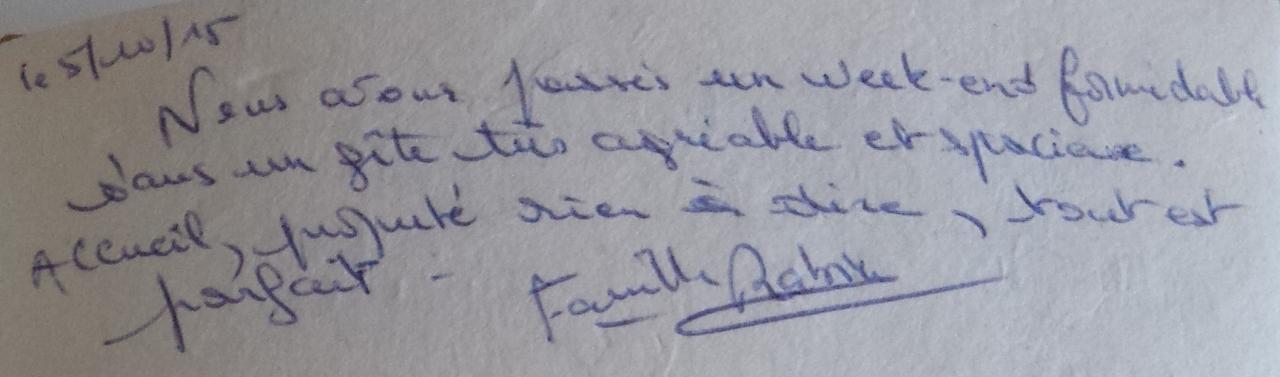 le 5/10/15
Nous avons passés un week-end formidable
dans un gîte très agréable et spacieux.
Accueil, propreté rien à dire, tout est
parfait - Famille